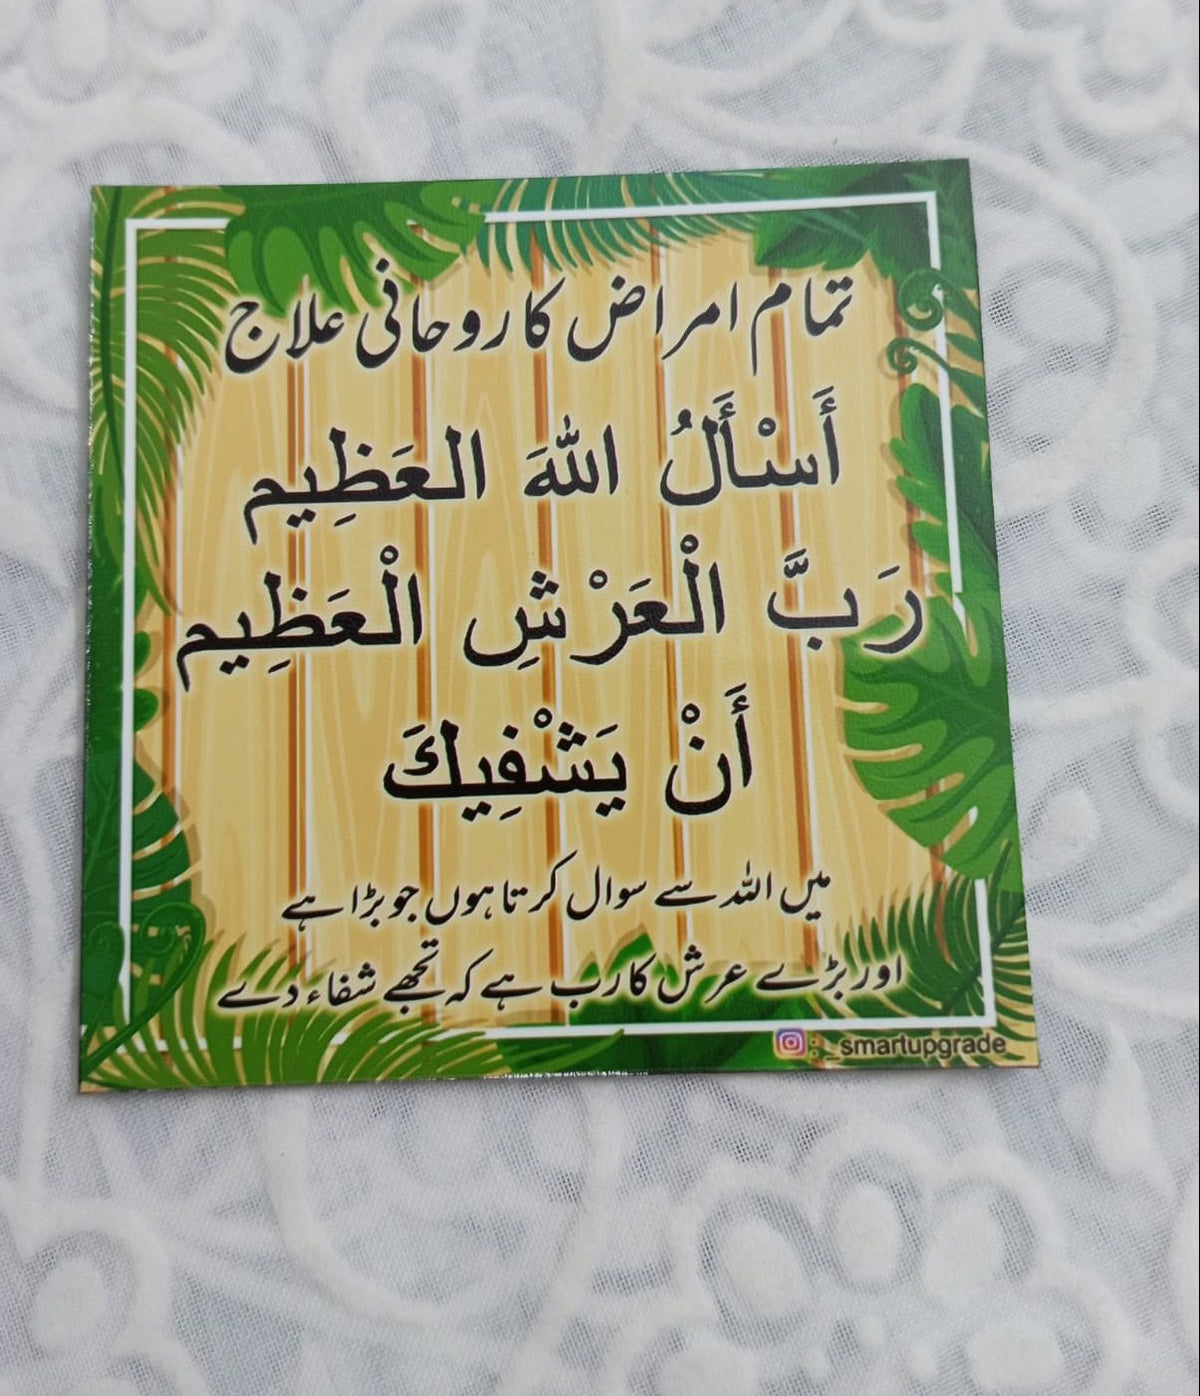 تمام امراض کا روحانی علاج
أَسْأَلُ اللهَ العَظِيم
رَبَّ الْعَرْشِ الْعَظِيم
أَنْ يَشْفِيكَ
میں اللہ سے سوال کرتا ہوں جو بڑا ہے
اور بڑے عرش کا رب ہے کہ تجھے شفاء دے
: _smartupgrade